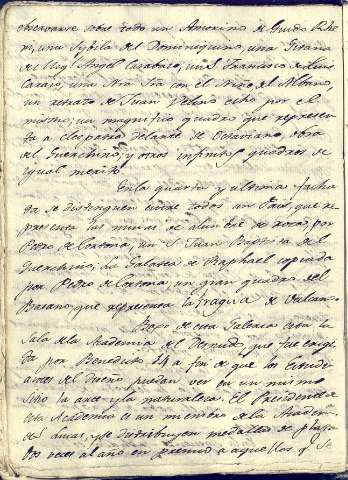 observarse sobre todo un Amorino de Guido Rhe-
ni, una Sybila del Dominiquino, una Gitana
de Mig.l Angel Carabaco, un S. Francisco de Luis
Caraso, una Nra Sra con el Niño del Albano,
un retrato de Juan Velino echo por el
mismo, un magnifico quadro que represen-
ta a Cleopatra delante de Octaviano, obra
del Guerchino, y otros infinitos quadros de
igual merito.
En la quarta y ultima facha-
da se distinguen sobre todos un Pais, que re-
presenta las minas de alumbre de roca, por
Pedro de Cortona, un S. Juan Baptista del
Guerchino, La Galatea de Raphael copiada
por Pedro de Cortona, un gran quadro del
Basano, que representa la fragua de Vulcano.
Baxo de esta Galeria esta la
Sala de la Academia del Desnudo, que fue erigi-
da por Benedicto 14 a fin de que los Estudi-
antes del diseño puedan ver en un mismo
sitio la arte y la naturaleza. El Presidente de
esta Academia es un miembro de la Academ.
de S. Lucas, y se distribuyen medallas de plata
dos veces al año en premio a aquellos q.e se